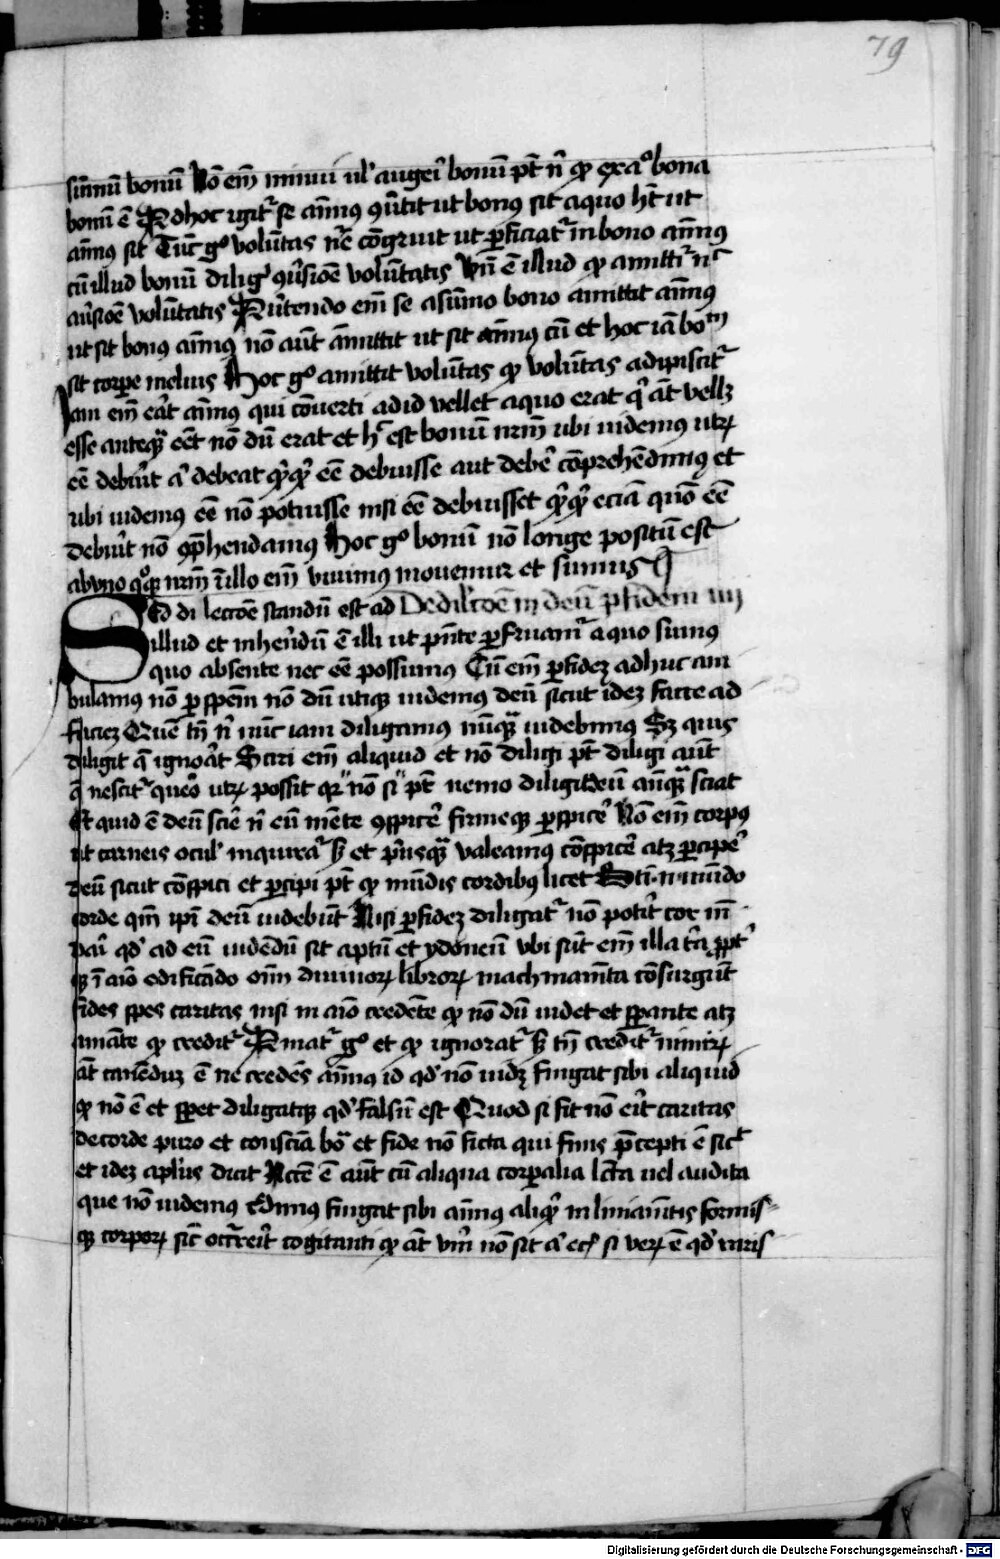 79
summū bonū Nō em̄ minui ul' augeri bonū pt̄ n̄ qd ex aᵒ bona
bonū ē Ad hoc igit᷑ se aīmus ꝯu̓tit ut bonus sit a quo ht̄ ut
aīmus sit Tūc gᵒ volūtas nr̄e cōgruit ut ꝑficiat᷑ in bono aīmus
cū illud bonū dilig ꝯu̓sioē volūtatis Vn̄ ē illud qd amittit᷑ nᶜ
au̓sioē volūtatis Au̓tendo em̄ se a sūmo bono amittit aīmus
ut sit bonus aīmus nō aūt amittit ut sit aīmus cū et hoc iā boᵐ
sit corꝑe melius Hoc gᵒ amittit volūtas qd volūtas adipiscit᷑
Iam em̄ eāt aīmus qui cōuerti ad id vellet a quo erat qͥ āt vellꝫ
esse anteqᷓ eēt nō dū erat et hᶜ est bonū nrm̄ ubi uidemus utꝝ
eē debuīt aͥ debeat qͥqͥd eē debuisse aut debē cōprehēdimus et
ubi uidemus eē nō potuisse nisi eē debuisset qͥqͥd eciā quō eē
debuīt nō ꝯp̄hendamus Hoc gᵒ bonū nō longe positū est
ab vno qᵒqꝫ nrm̄ ī illo em̄ viuimus mouemur et sumus
Sed di lectoē standū est ad De dil'ctoē in deū p fidem iiij
illud et inheu̓dū ē illi ut pn̄te ꝑfruam᷑ a quo sumus
quo absente nec eē possumus Cū em̄ ꝑ fidez adhuc am
bulamus nō ꝑ spem̄ nō dū utiqꝫ uidemus deū sicut idez facie ad
faciez Quē tn̄ n̄ nūc iam diligamus nūqᷓ uidebimus Sꝫ quis
diligit qͣ ignoāt Sciri em̄ aliquid et nō diligi pt̄ diligi aūt
qͣ nescit᷑ quero utꝝ possit qr̄ nō si pt̄ nemo diligit deū anteqᷓ sciat
Et quid ē deū scīe n̄ eū mēte ꝯspicē firmeqꝫ ꝑspicē Nō em̄ corpꝰ
ut carneis ocul' inquirāt᷑ sꝫ et pͥusqᷓ valeamus cōspicē atqꝫ ꝑcipē
deū sicut cōspici et ꝑcipi pt̄ qd mūdis cordibus licet Bt̄i n mūdo
corde qm̄ ipī deū uidebūt Nisi ꝑ fidez diligat᷑ nō poti̓t cor m̄
dari qd' ad eū uidēdū sit aptū et ydoneū Vbi sūt em̄ illa tͥa ꝓpt᷑
qꝫ ī aīo edificādo om̄ diuinoꝝ libroꝝ machinam̄ta cōsurgūt
fides spes caritas nisi in aīo credēte qd nō dū uidet et sꝑante atqꝫ
amāte qd credit᷑ Amat᷑ gᵒ et qd ignorat᷑ sꝫ tn̄ credit᷑ nimiꝝ
āt cauēduz ē ne credēs aīmus id qd' nō uidꝫ fingat sibi aliquid
qd nō ē et sꝑet diligatqꝫ qd' falsū est Quod si fit nō eīt caritas
de corde puro et consciā boā et fide nō ficta qui finis p̄cepti ē sicᵗ
et idez apl'us dicit Nccē ē aūt cū aliqua corꝑalia lc̄ta uel audita
que nō uidemus c̄dimus fingat sibi aīmus aliqͥd in liniam̄tis formis
qꝫ corpoꝝ sic̄ occur̄eīt cogitanti qd āt vm̄ nō sit aͥ etˢ si veꝝ ē qd' raris